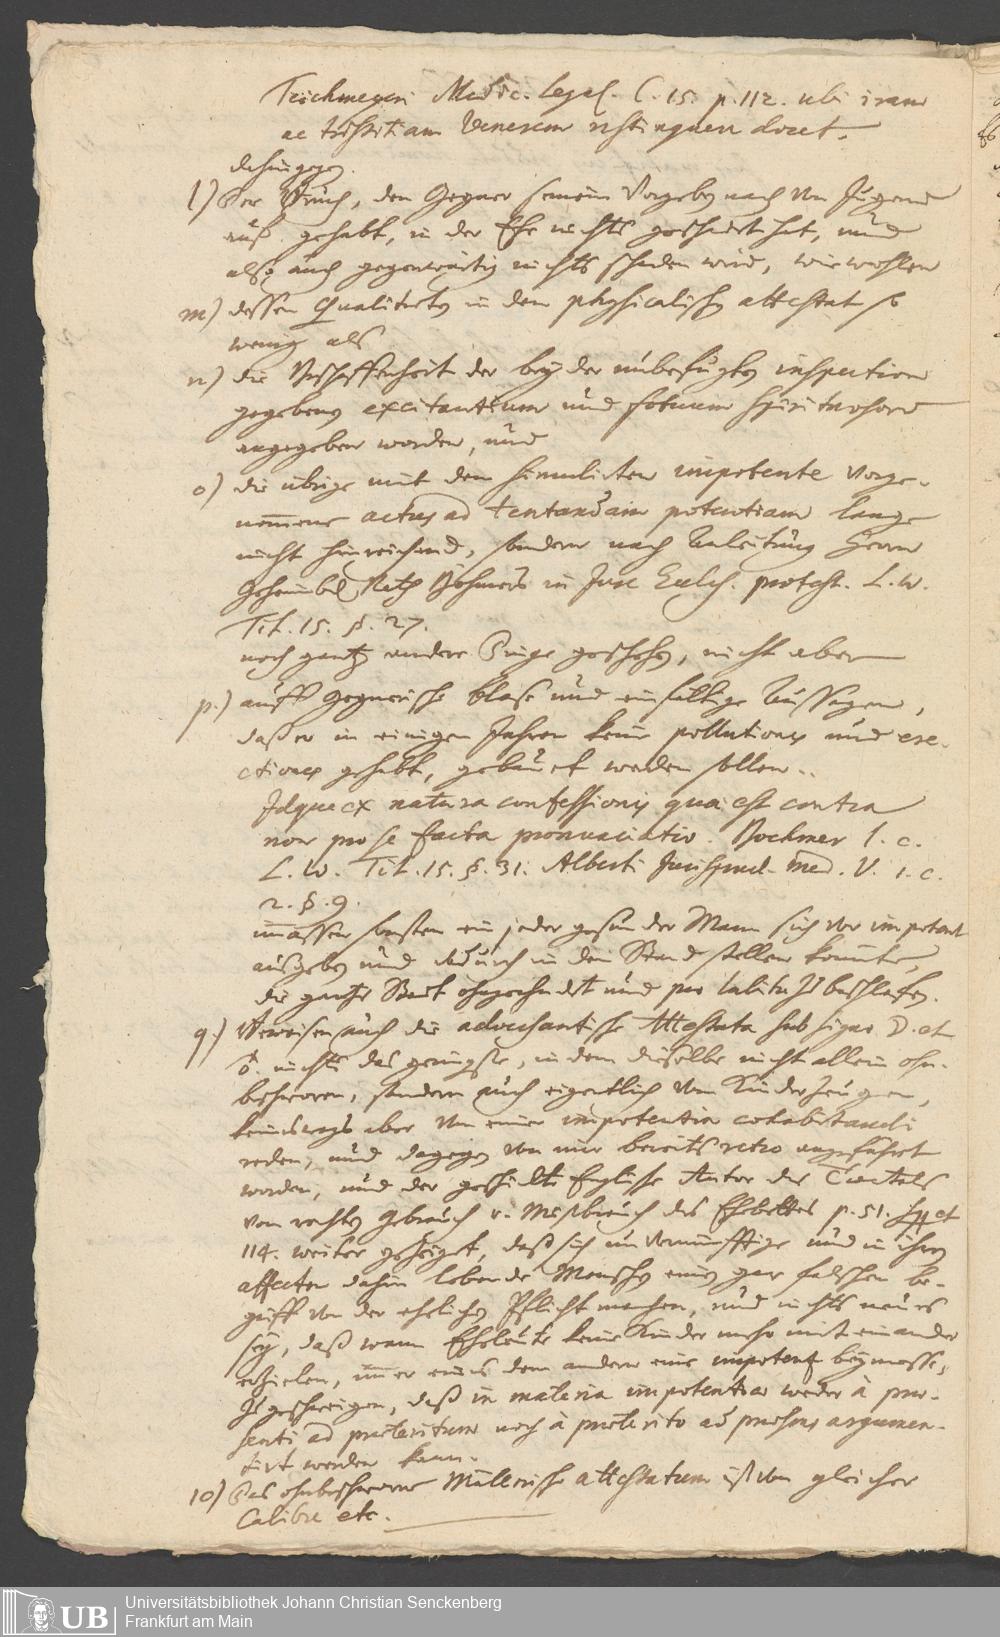 Teichmeyeri Medic. Legal. C. 15. p. 112. ubi iram
ac tristitiam Venerem restinguere docet.
dahingegen.
l) Der Bruch, den Gegner seinem Vorgeben nach von Jugend
auf gehabt, in der Ehe nichts geschadet hat, und
also auch gegenwärtig nichts schaden wird, wie wohlen
m) dessen Qualitäten in dem physicalischen attestat so
wenig als
n) die Beschaffenheit der bey der unbefugten inspection
gegebenen excitantium und fotuum spirituosorum
angegeben worden, und
o) die übrige mit dem simulirten impotente vorge-
nommene actus ad tentandam potentiam lange
nicht hinreichend, sondern nach Anleitung Herrn
Geheimbden Rath Böhmers in Jure Eccles. protest. L. IV.
Tit. 15. §. 27.
noch gantz andere Dinge geschehen, nicht aber
p.) auff Gegnerische blose und einfältige Aussagen,
daß er in einigen Jahren keine pollutiones und ere-
ctiones gehabt, gebauet werden sollen..
Idque ex natura confessionis quae est contra
non pro se facta pronunciatio. Boehmer l. c.
L. IV. Tit. 15. §. 31. Alberti Jurisprud. med. V. 1. c.
2. §. 9.
immassen sonsten ein jeder gesunder Mann sich vor impotent
ausgeben und dadurch in den Stand stellen könnte,
die gantze Stadt ohngehindert und pro lubitu zu beschlafen.
q.) Beweisen auch die advocantische Attestata sub signo ☽. et
♁. nichts das geringste, in dem dieselbe nicht allein ohn-
beschworen, sondern auch eigentlich vom Kinder Zeugen,
keineswegs aber von einer impotentia cohabitandi
reden, und dagegen von mir bereits retro angeführt
worden, und der geschickte Englische Autor des Tractats
vom rechten Gebrauch u. Mißbrauch des Ehebettes p. 51. sqq et
114. weiter gezeiget, daß sich unvernünfftige und in ihren
affecten dahin lebende Menschen einen gar falschen be-
griff von der ehelichen Pflicht machen, und nichts neues
sey, daß wann Eheleute keine Kinder mehr mit einander
erhielen, immer eines dem andern eine impotenz beymesse,
zu geschweigen, daß in materia impotentiae weder à prae-
senti ad praeteritum noch à praeterito ad praesens argumen-
tirt werden kann.
10) Das ohnbeschworne Müllerische attestatum ist von gleicher
Calibre etc.
UB Universitätsbibliothek Johann Christian Senckenberg
Frankfurt am Main